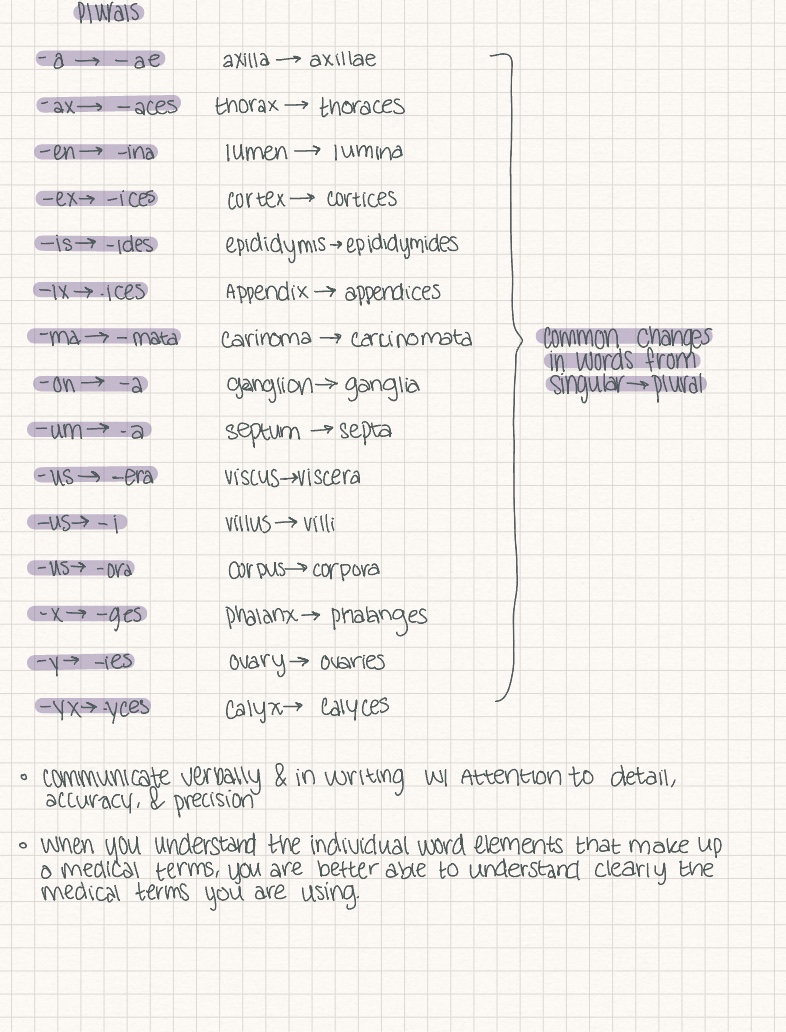 Plurals
-a → -ae axilla → axillae
-ax → -aces thorax → thoraces
-en → -ina lumen → lumina
-ex → -ices cortex → cortices
-is → -ides epididymis → epididymides
-ix → -ices Appendix → appendices
-ma → -mata Carinoma → carcinomata
-on → -a ganglion → ganglia
-um → -a septum → septa
-us → -era viscus → viscera
-us → -i villus → villi
-us → -ora corpus → corpora
-x → -ges phalanx → phalanges
-y → -ies ovary → ovaries
-yx → -yces calyx → calyces
common changes
in words from
singular → plural
• communicate verbally & in writing w/ Attention to detail,
accuracy, & precision
• when you understand the individual word elements that make up
a medical terms, you are better able to understand clearly the
medical terms you are using.